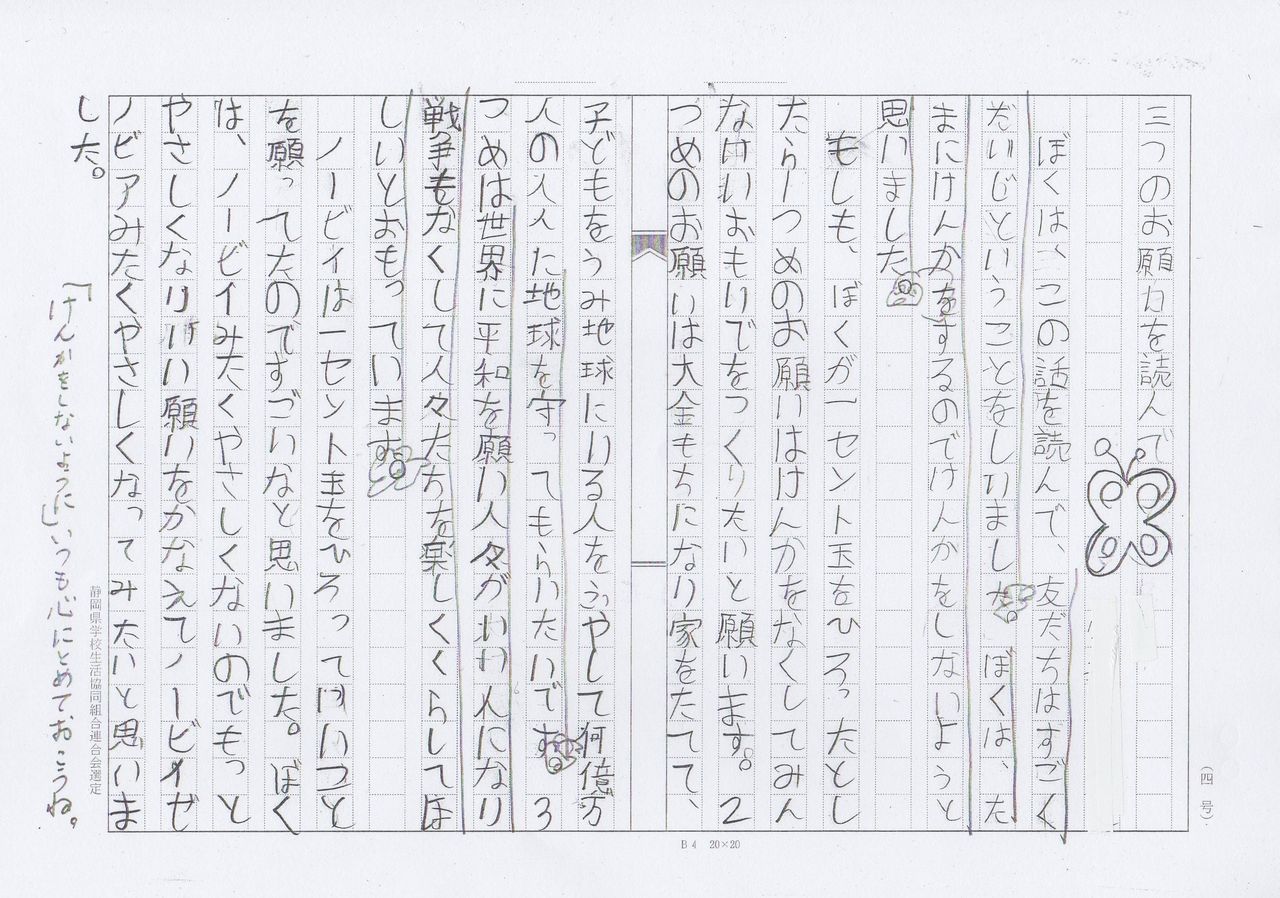 三つのお願いを読んで
ぼくは、この話を読んで、友だちはすごく
だいじということをしりました。ぼくは、た
まにけんかをするのでけんかをしないようと
思いました
もしも、ぼくが一セント玉をひろったとし
たら一つめのお願いはけんかをなくしてみん
ないいおもいでをつくりたいと願います。2
つめのお願いは大金もちになり家をたてて、
子どもをうみ地球にいる人をふやして何億万
人の人人に地球を守ってもらいたいです。3
つめは世界に平和を願い人々がいい人になり
戦争もなくして人々たちを楽しくくらしてほ
しいとおもっています。
ノービィは一セント玉をひろって
を願ってたのですごいなと思いました。ぼく
は、ノービイみたくやさしくないのでもっと
やさしくなりいい願いをかなえてノービィゼ
ノビアみたくやさしくなってみたいと思いま
した。
「けんかをしないように」いつも心にとめておこうね。
静岡県学校生活協同組合連合会選定
(四号)
B4 20×20